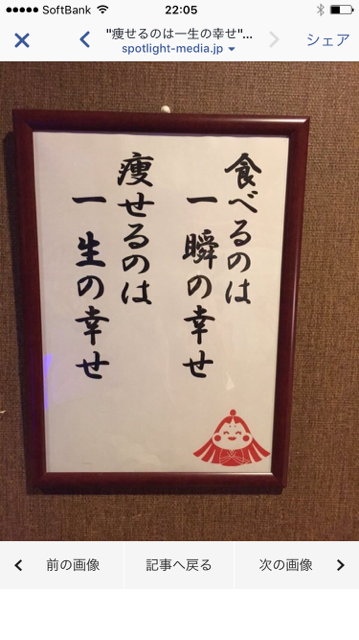 SoftBank 22:05
"痩せるのは一生の幸せ"...
spotlight-media.jp
シェア
食べるのは
一瞬の幸せ
痩せるのは
一生の幸せ
前の画像
記事へ戻る
次の画像